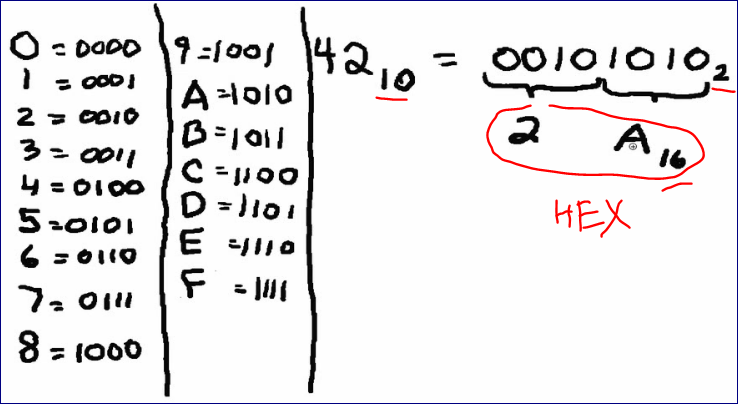 0 = 0000
1 = 0001
2 = 0010
3 = 0011
4 = 0100
5 = 0101
6 = 0110
7 = 0111
8 = 1000
9 = 1001
A = 1010
B = 1011
C = 1100
D = 1101
E = 1110
F = 1111
42₁₀ = 00101010₂
2 A₁₆
HEX